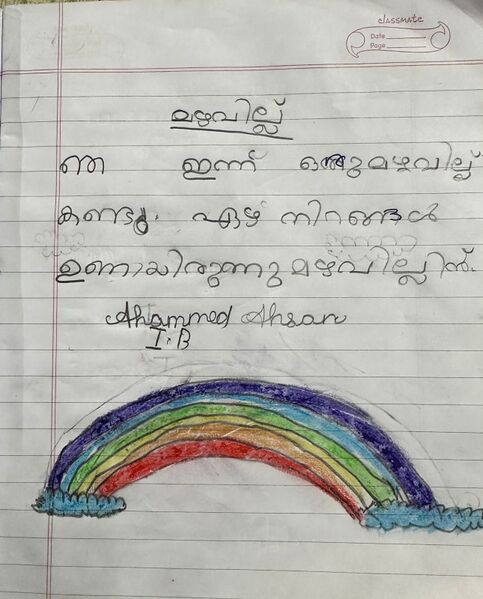 classmate
Date
Page
മഴവില്ല്
ഞ ഇന്ന് ഒരു മഴവില്ല്
കണ്ടു. ഏഴ് നിറങ്ങൾ
ഉണായിരുന്നു മഴ്വില്ലിൻ.
Ahammed Ahsan
I.B